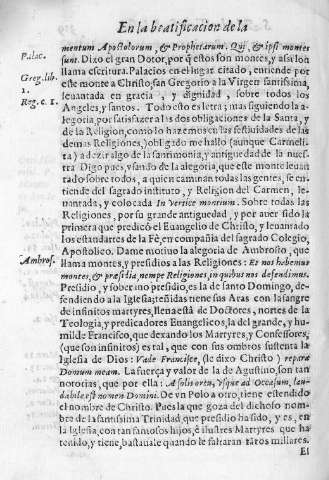 En la beatificacion de la
mentum Apostolorum, & Prophetarum. Qui, & ipsi montes
Palac.
sunt. Dixo el gran Dotor, por q̃ estos son montes, y assi los
Greg. lib.
llama escritura. Palacios en el lugar citado, entiende por
1.
este monte a Christo, san Gregorio a la Virgen santissima,
Reg. c. 1.
leuantada en gracia, y dignidad, sobre todos los
Angeles, y santos. Todo esto es letra; mas siguiendo la a-
legoria, por satisfazer a las dos obligaciones de la Santa, y
de la Religion, como lo hazemos en las festiuidades de las
demas Religiones,) obligado me hallo (aunque Carmeli-
ta) a dezir algo de la santimonia, y antiguedad de la nues-
tra Digo pues, vsando de la alegoria, que este monte leuan
tado sobre todos, a quien caminan todas las gentes, se en-
tiende del sagrado instituto, y Religion del Carmen, le-
uantada, y colocada In vertice montium. Sobre todas las
Religiones, por su grande antiguedad, y por auer sido la
primera que predicó el Euangelio de Christo, y leuantado
los estandartes de la Fè, en compañia del sagrado Colegio,
Apostolico. Dame motiuo la alegoria de Ambrosio, que
Ambros.
llama montes, y presidios a las Religiones: Et nos habemus
montes, & præsidia, nempe Religiones, in quibus nos defendimus.
Presidio, y soberano presidio, es la de santo Domingo, de-
fendiendo a la Iglesia, teñidas tiene sus Aras con la sangre
de infinitos martyres, llena està de Doctores, nortes de la
Teologia, y predicadores Euangelicos, la del grande, y hu-
milde Francisco, que dexando los Martyres, y Confessores,
(que son infinitos) es tal, que con sus ombros sustenta la
Iglesia de Dios: Vade Francisce, (le dixo Christo) repara
Domum meam. La fuerça y valor de la de Agustino, son tan
notorias, que por ella: A solis ortu, vsque ad Occasum, lau-
dabile est nomen Domini. De vn Polo a otro, tiene estendido
el nombre de Christo. Pues la que goza del dichoso nom-
bre de la santissima Trinidad, que presidio ha sido, y es, en
la Iglesia, con tan santos hijos, è ilustres Martyres que ha
tenido, y tiene, bastauale quando le faltaran raros millares.
El